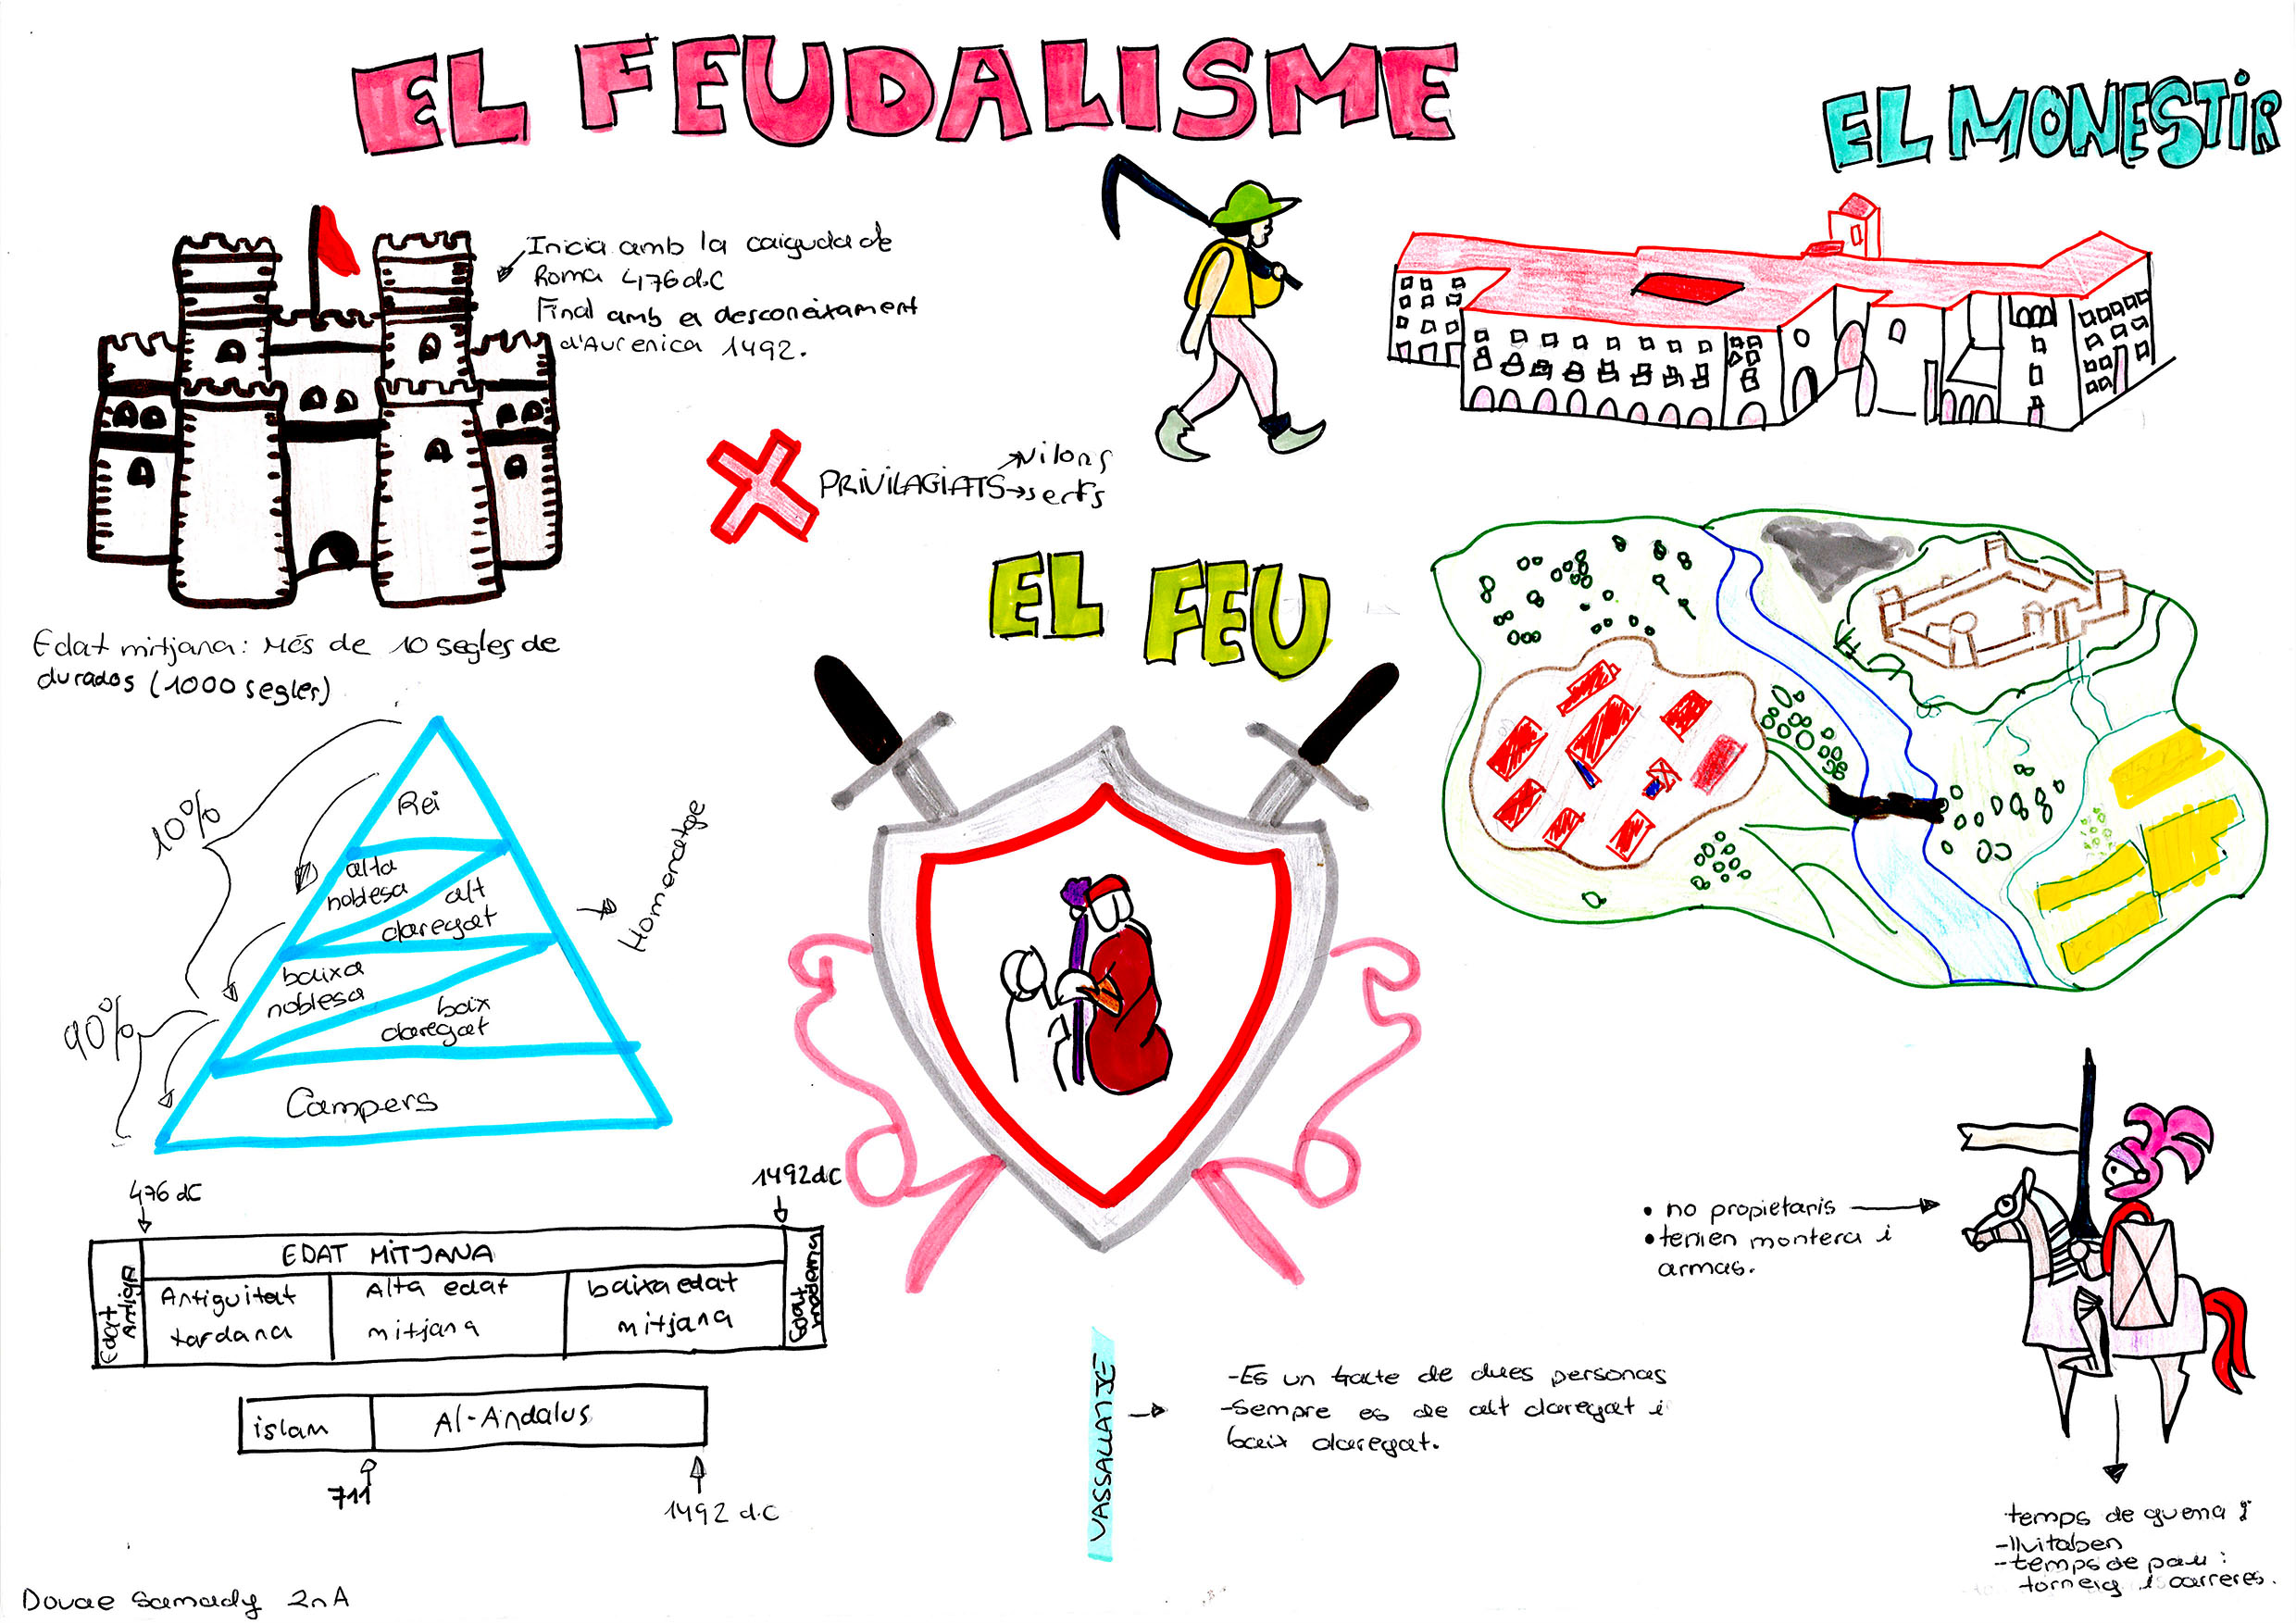 EL FEUDALISME
EL MONESTIR
Inicia amb la caiguda de
Roma 476 d.C
Final amb el desconeixament
d'Aurenica 1492.
PRIVILAGIATS
Vilans
serfs
EL FEU
Edat mitjana: Més de 10 segles de
durados (1000 segles)
10%
90%
Rei
alta
noblesa
alt
claregat
baixa
noblesa
baix
claregat
Campers
Homenatge
476 dC
1492 dC
Edat
Antiga
EDAT MITJANA
Antiguitat
tardana
Alta edat
mitjana
baixa edat
mitjana
Edat
moderna
islam
Al-Andalus
711
1492 d.C
VASSALLATJE
-Es un tacte de dues personas
-Sempre es de alt claregat i
baix claregat.
• no propietaris
• tenien montera i
armas.
temps de guerra :
-lluitaben
-temps de pau :
torneig i carreres.
Douae Samady 2nA